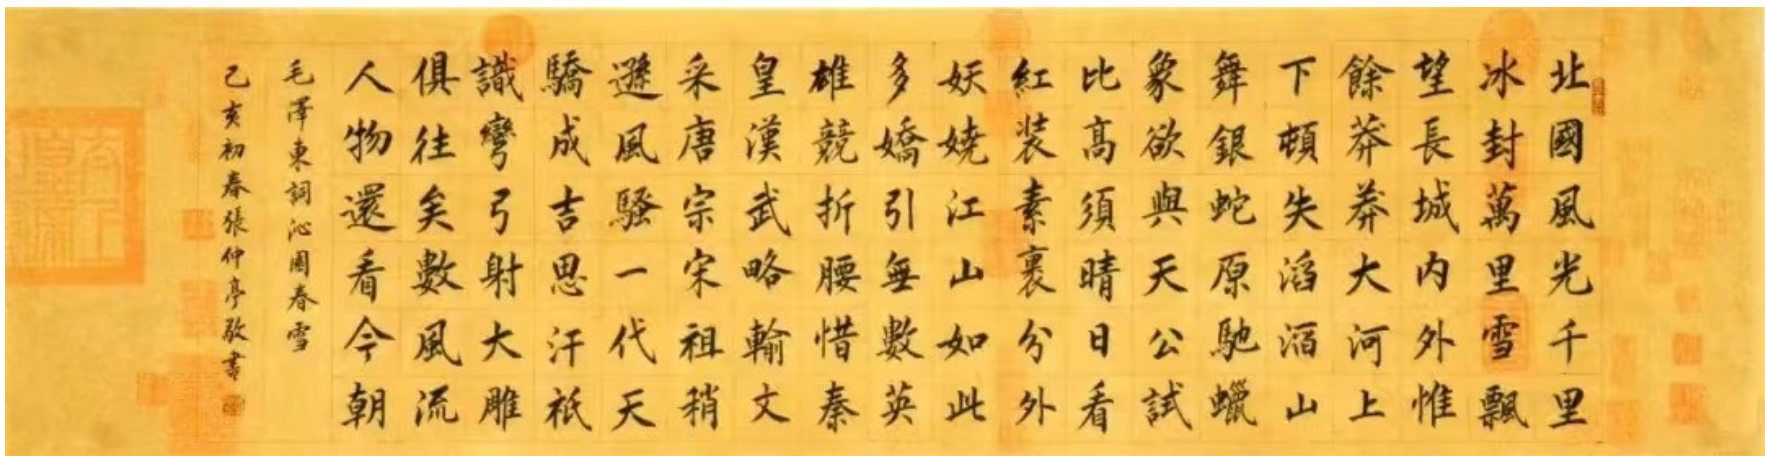 北國風光千里
冰封萬里雪飄
望長城内外惟
餘莽莽大河上
下頓失滔滔山
舞銀蛇原馳蠟
象欲與天公試
比髙須晴日看
紅装素裹分外
妖嬈江山如此
多嬌引無數英
雄競折腰惜秦
皇漢武略輸文
采唐宗宋祖稍
遜風騷一代天
驕成吉思汗祇
識彎弓射大雕
俱往矣數風流
人物還看今朝
毛澤東詞沁園春雪
己亥初春張仲亭敬書